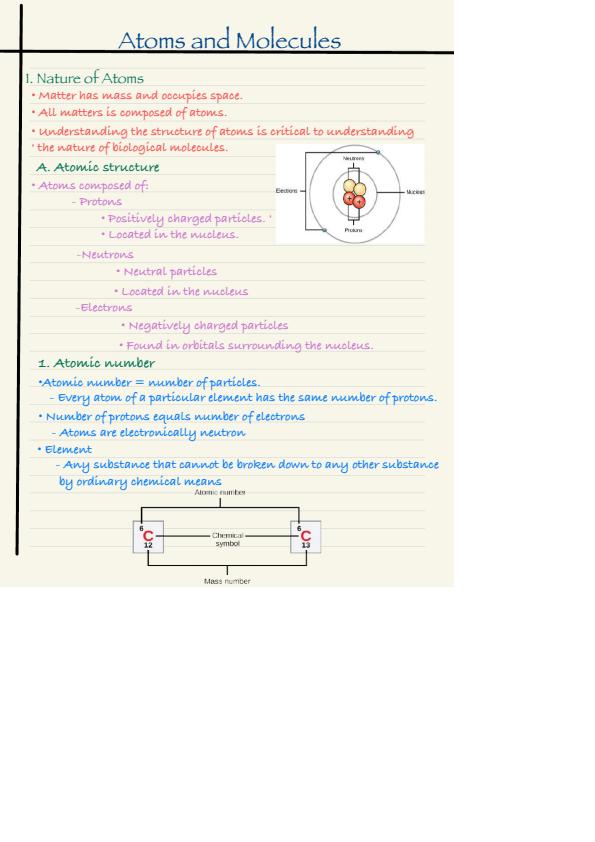 Atoms and Molecules
I. Nature of Atoms
• Matter has mass and occupies space.
• All matters is composed of atoms.
• Understanding the structure of atoms is critical to understanding
' the nature of biological molecules.
A. Atomic structure
• Atoms composed of:
- Protons
• Positively charged particles. '
• Located in the nucleus.
-Neutrons
• Neutral particles
• Located in the nucleus
-Electrons
• Negatively charged particles
• Found in orbitals surrounding the nucleus.
Neutrons
Electrons
Protons
1. Atomic number
•Atomic number = number of particles.
- Every atom of a particular element has the same number of protons.
• Number of protons equals number of electrons
- Atoms are electronically neutron
• Element
- Any substance that cannot be broken down to any other substance
by ordinary chemical means
Atomic number
6 6
C Chemical C
symbol
12 13
Mass number